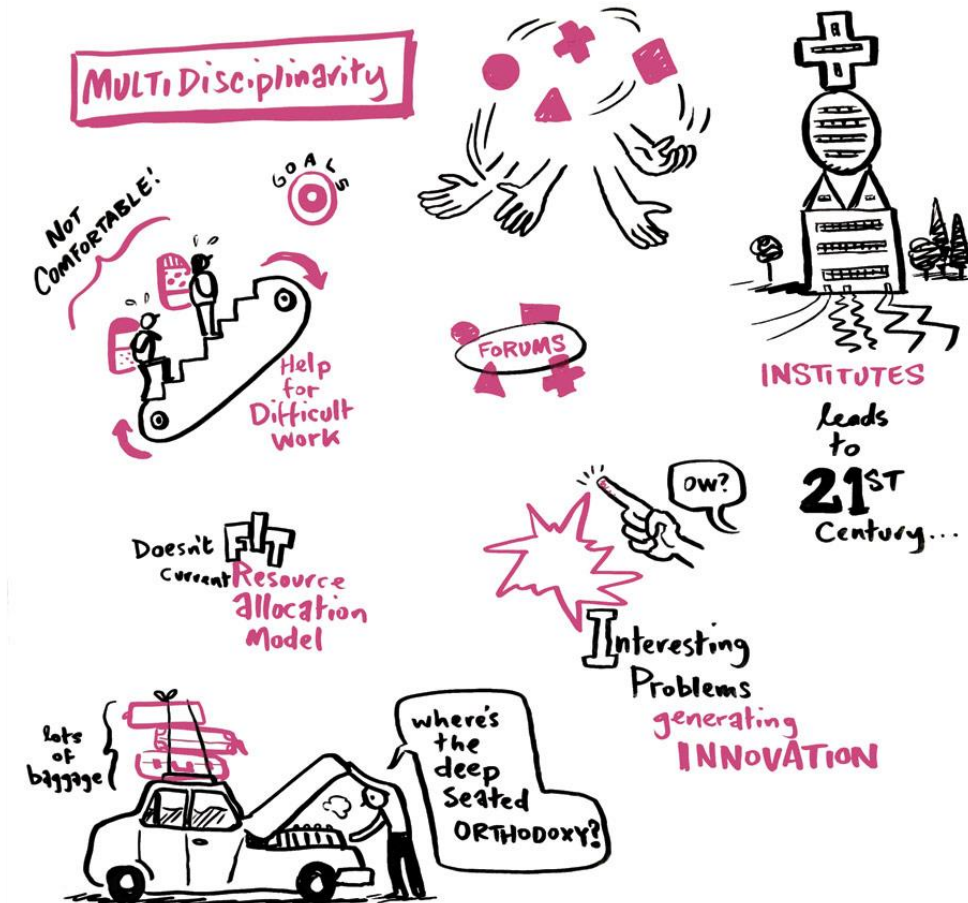 MULTiDisciplinarity
GOALS
NOT
COMFORTABLE!
Help
for
Difficult
Work
FORUMS
INSTITUTES
leads
to
21ST
Century...
OW?
Doesn't FIT
Current Resource
allocation
Model
Interesting
Problems
generating
INNOVATION
lots
of
baggage
where's
the
deep
Seated
ORTHODOXY?